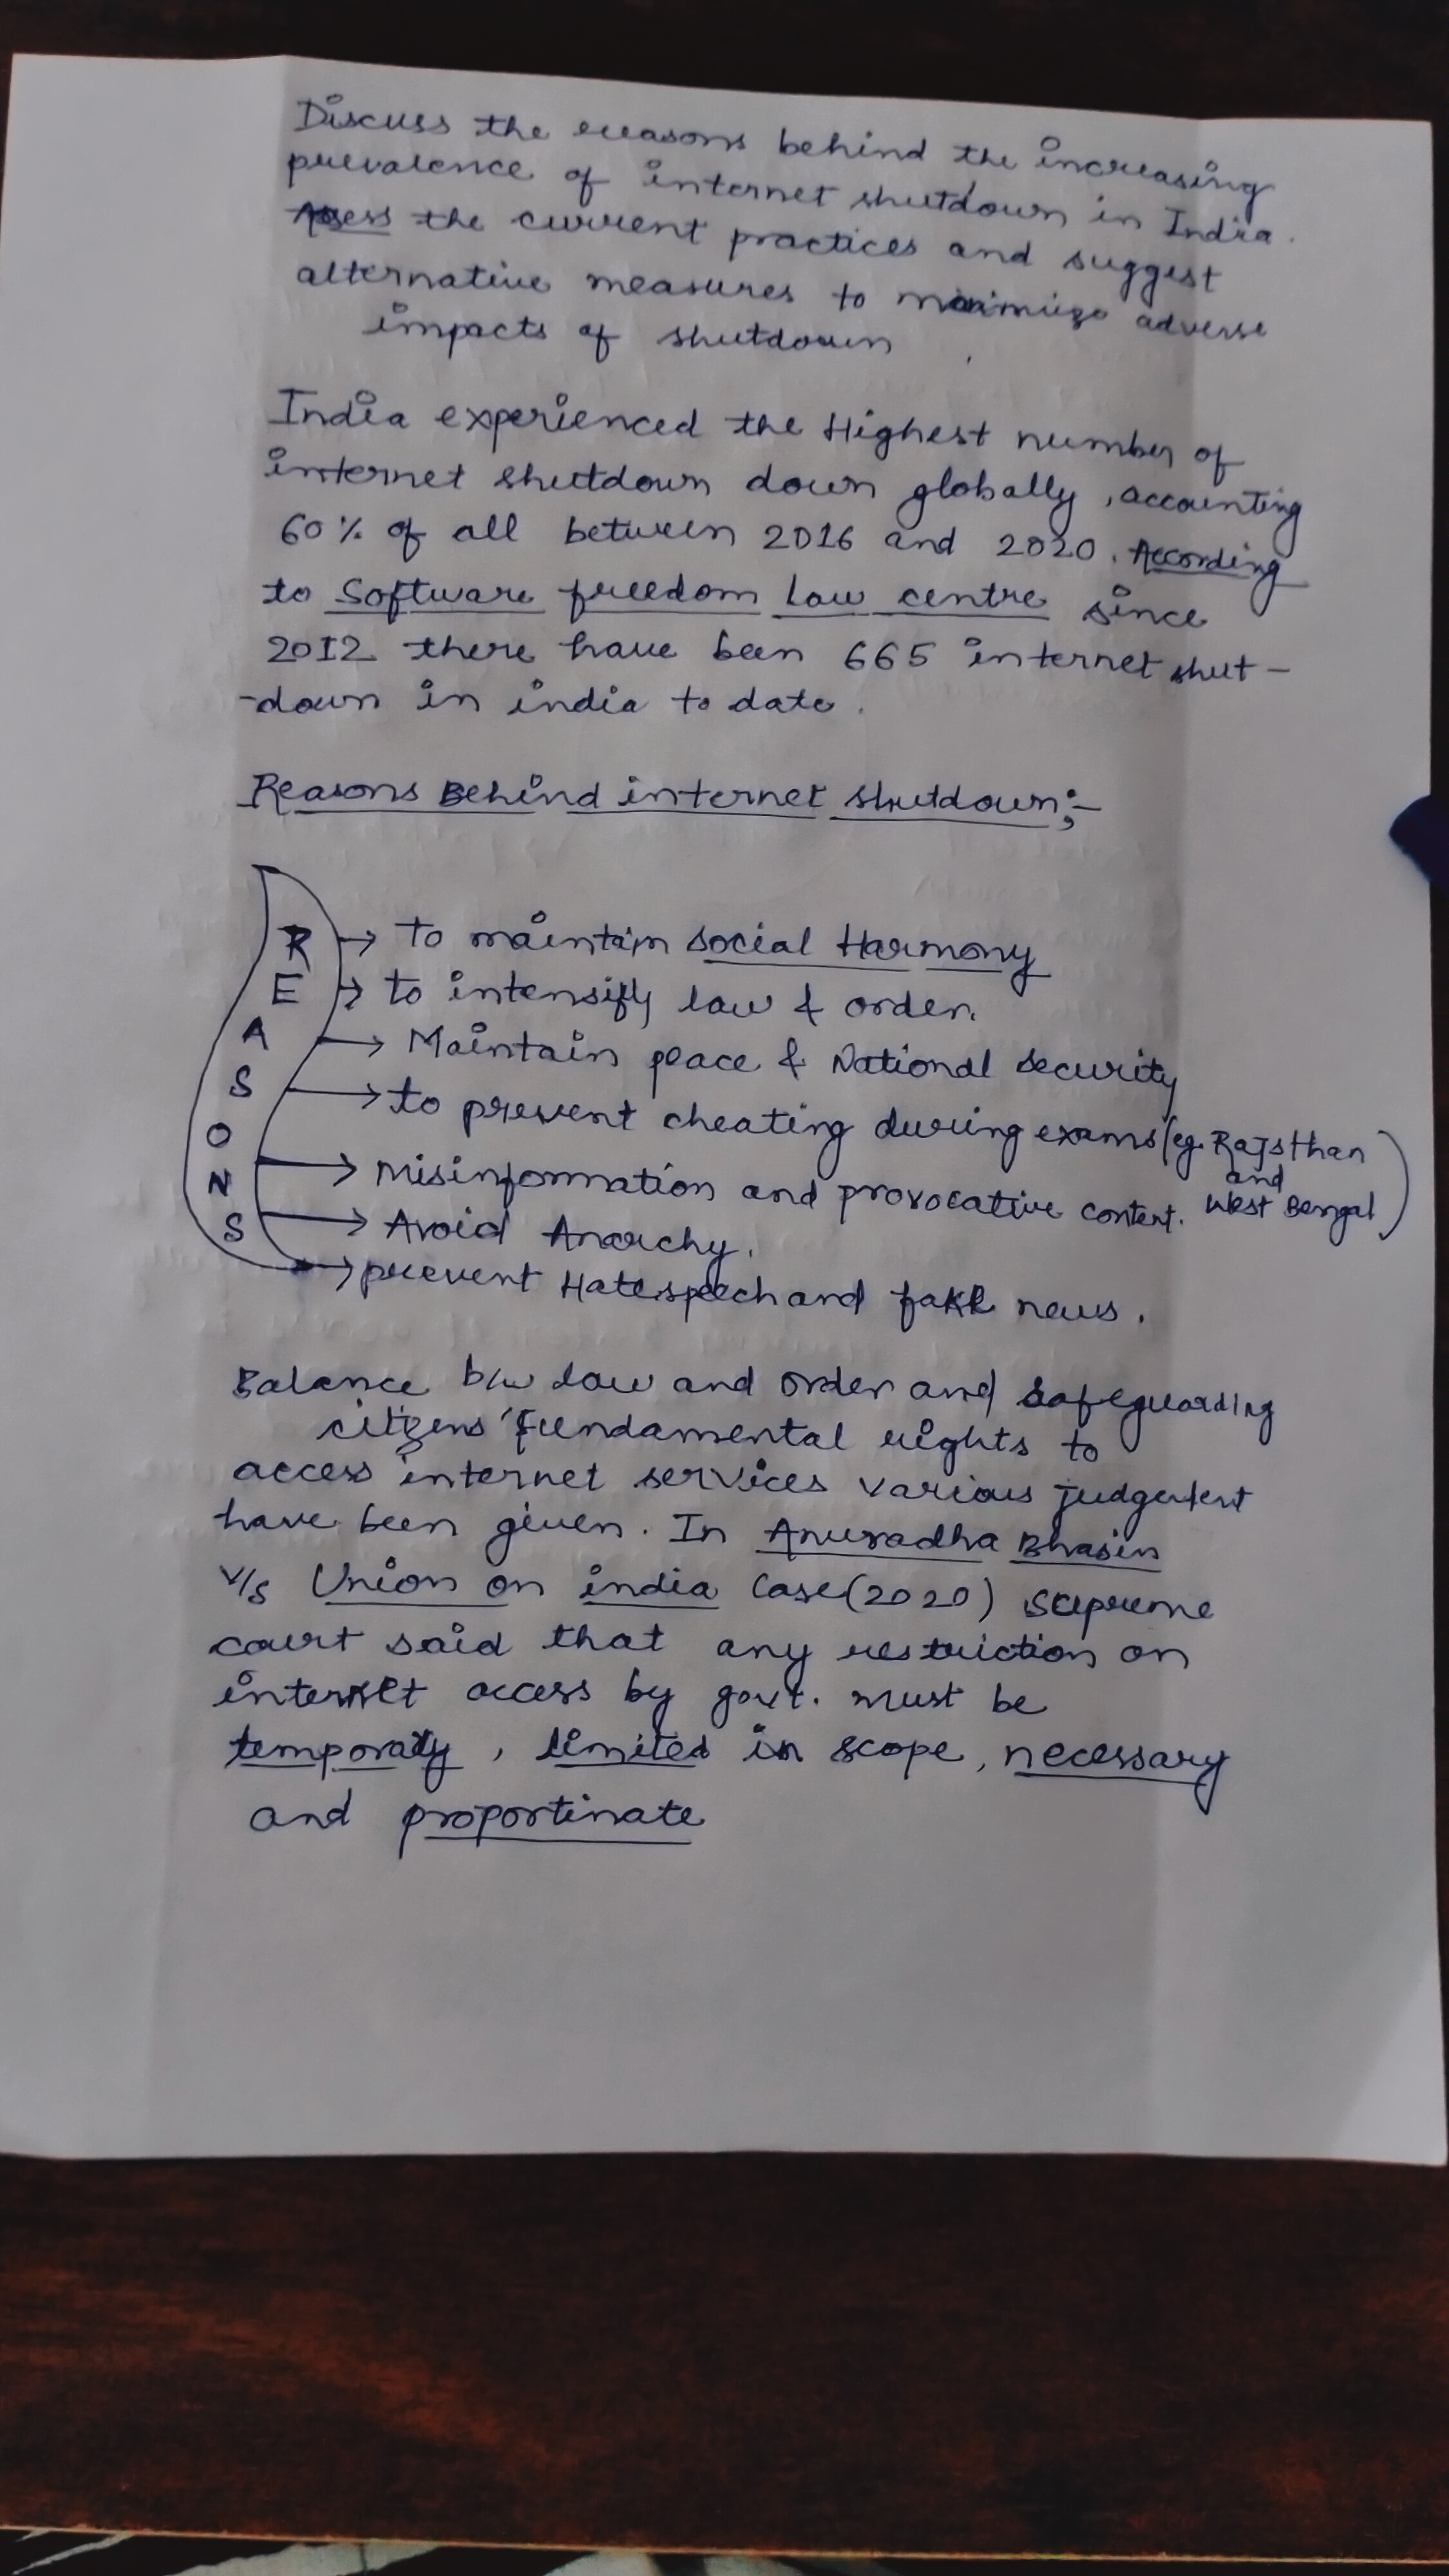 Discuss the reasons behind the increasing
prevalence of internet shutdown in India.
Assess the current practices and suggest
alternative measures to minimize adverse
impacts of shutdown
India experienced the Highest number of
internet shutdown down globally, accounting
60% of all between 2016 and 2020. According
to Software freedom law centre since
2012 there have been 665 internet shut-
-down in india to date.
Reasons Behind internet shutdown:-
R → to maintain social Harmony
E → to intensify law & order.
A → Maintain peace & National security
S → to prevent cheating during exams (eg. Rajsthan and West Bengal)
O → Misinformation and provocative content.
N → Avoid Anarchy.
S → prevent Hate speech and fake news.
Balance b/w law and order and safeguarding
citizens' fundamental rights to
access internet services various judgement
have been given. In Anuradha Bhasin
v/s Union on india Case (2020) Supreme
court said that any restriction on
internet access by govt. must be
temporary, limited in scope, necessary
and proportinate